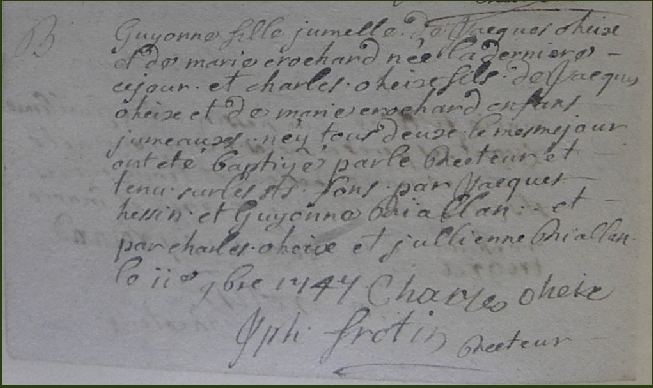 B
Guyonne fille jumelle de Jacques oheix
et de marie crochard née la derniere
ce jour et charles oheix fils de Jacques
oheix et de marie crochard enfans
jumeaux néy tous deux le mesme jour
ont eté baptizés par le Recteur et
tenu sur les sts fons par Jacques
hessin et Guyonne Driallan et
par charles oheix et jullienne Driallan
le iie 9bre 1747 Charles oheix
Jph frotin Recteur